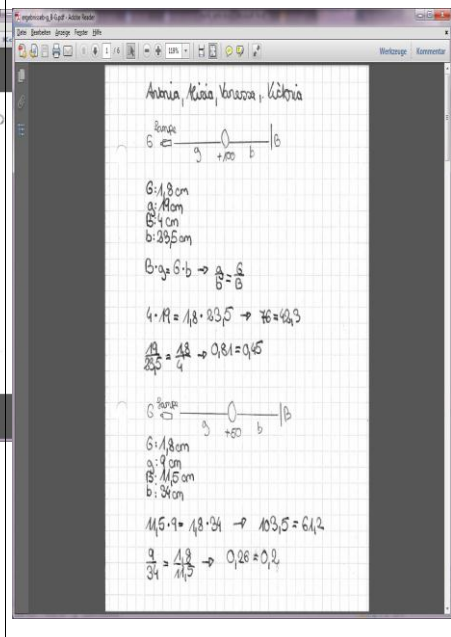 ergebnisse-b-g_B-G.pdf - Adobe Reader
Datei Bearbeiten Anzeige Fenster Hilfe
1 / 6 118% Werkzeuge Kommentar
Antonia, Alisia, Vanessa, Victoria
Lampe
G B
g +100 b
G: 1,8 cm
g: 19 cm
B: 4 cm
b: 23,5 cm
B·g = G·b → g/b = G/B
4·19 = 1,8·23,5 → 76 = 42,3
19/23,5 = 1,8/4 → 0,81 = 0,45
Lampe
G B
g +50 b
G: 1,8 cm
g: 9 cm
B: 11,5 cm
b: 34 cm
11,5·9 = 1,8·34 → 103,5 = 61,2
9/34 = 1,8/11,5 → 0,26 = 0,2